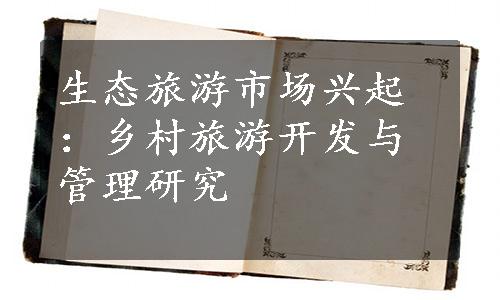 生态旅游市场兴起
：乡村旅游开发与
管理研究